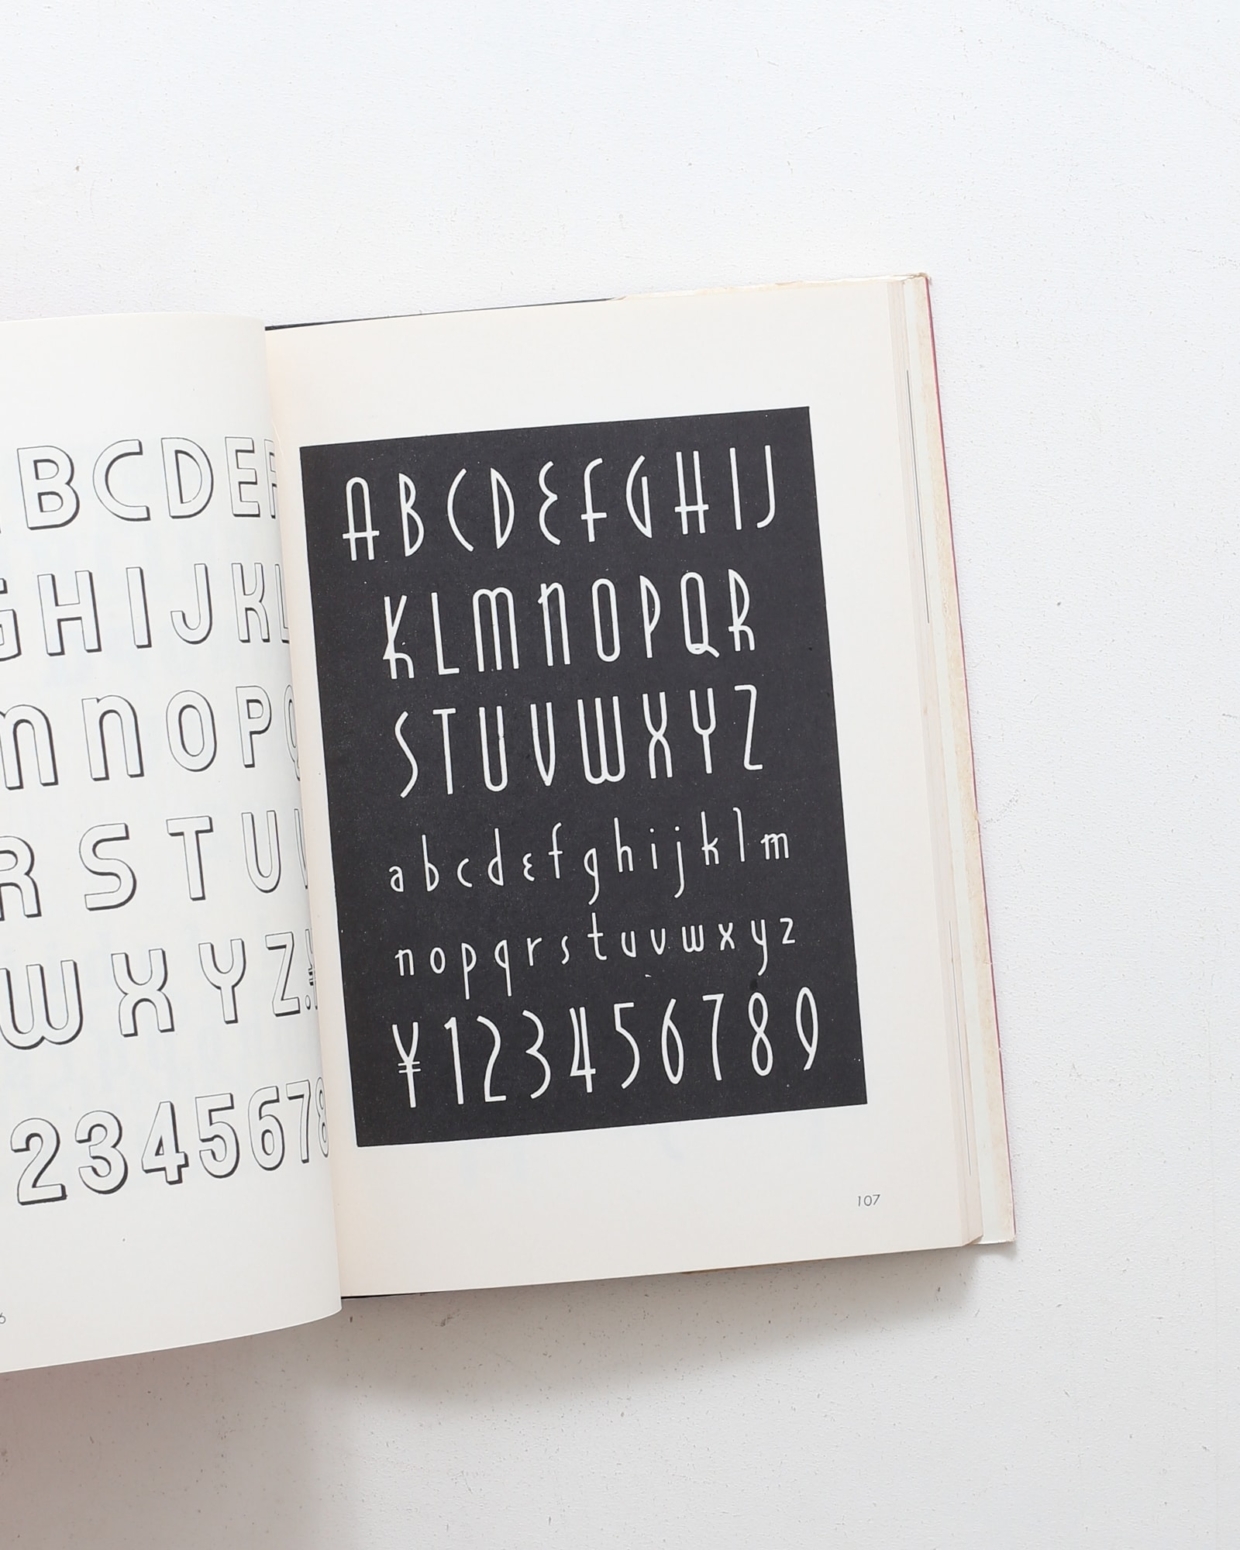 BCDEF
GHIJKL
mnOPQ
RSTU
WXYZ
2345678
6
ABCDEFGHIJ
KLMNOPQR
STUVWXYZ
abcdefghijklm
nopqrstuvwxyz
¥123456789
107